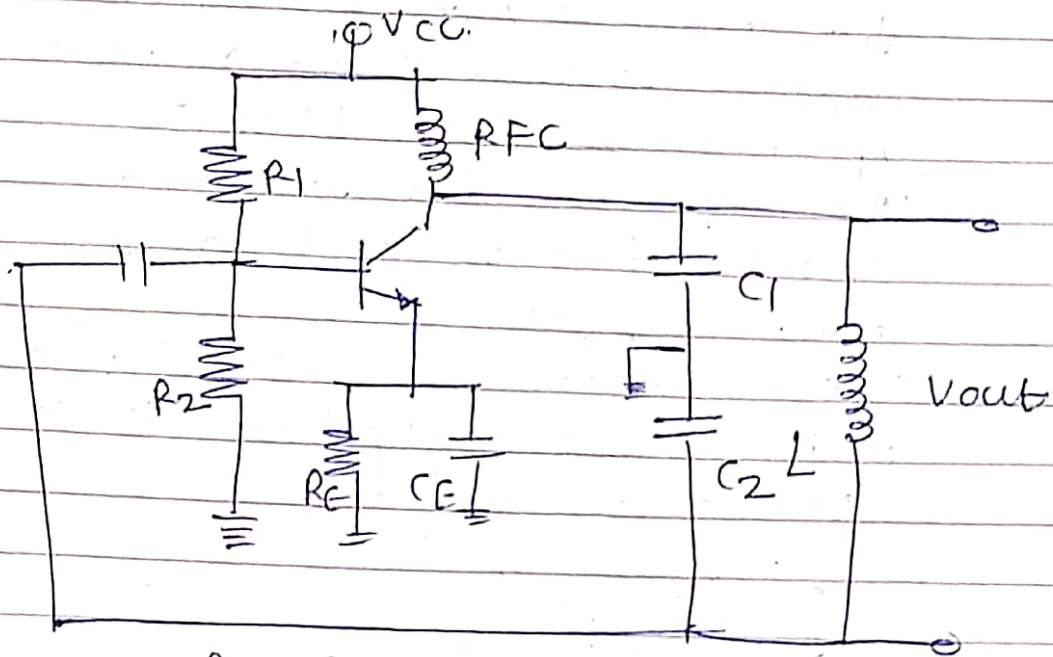 VCC
RFC
R1
C1
R2
Vout
RE
CE
C2
L